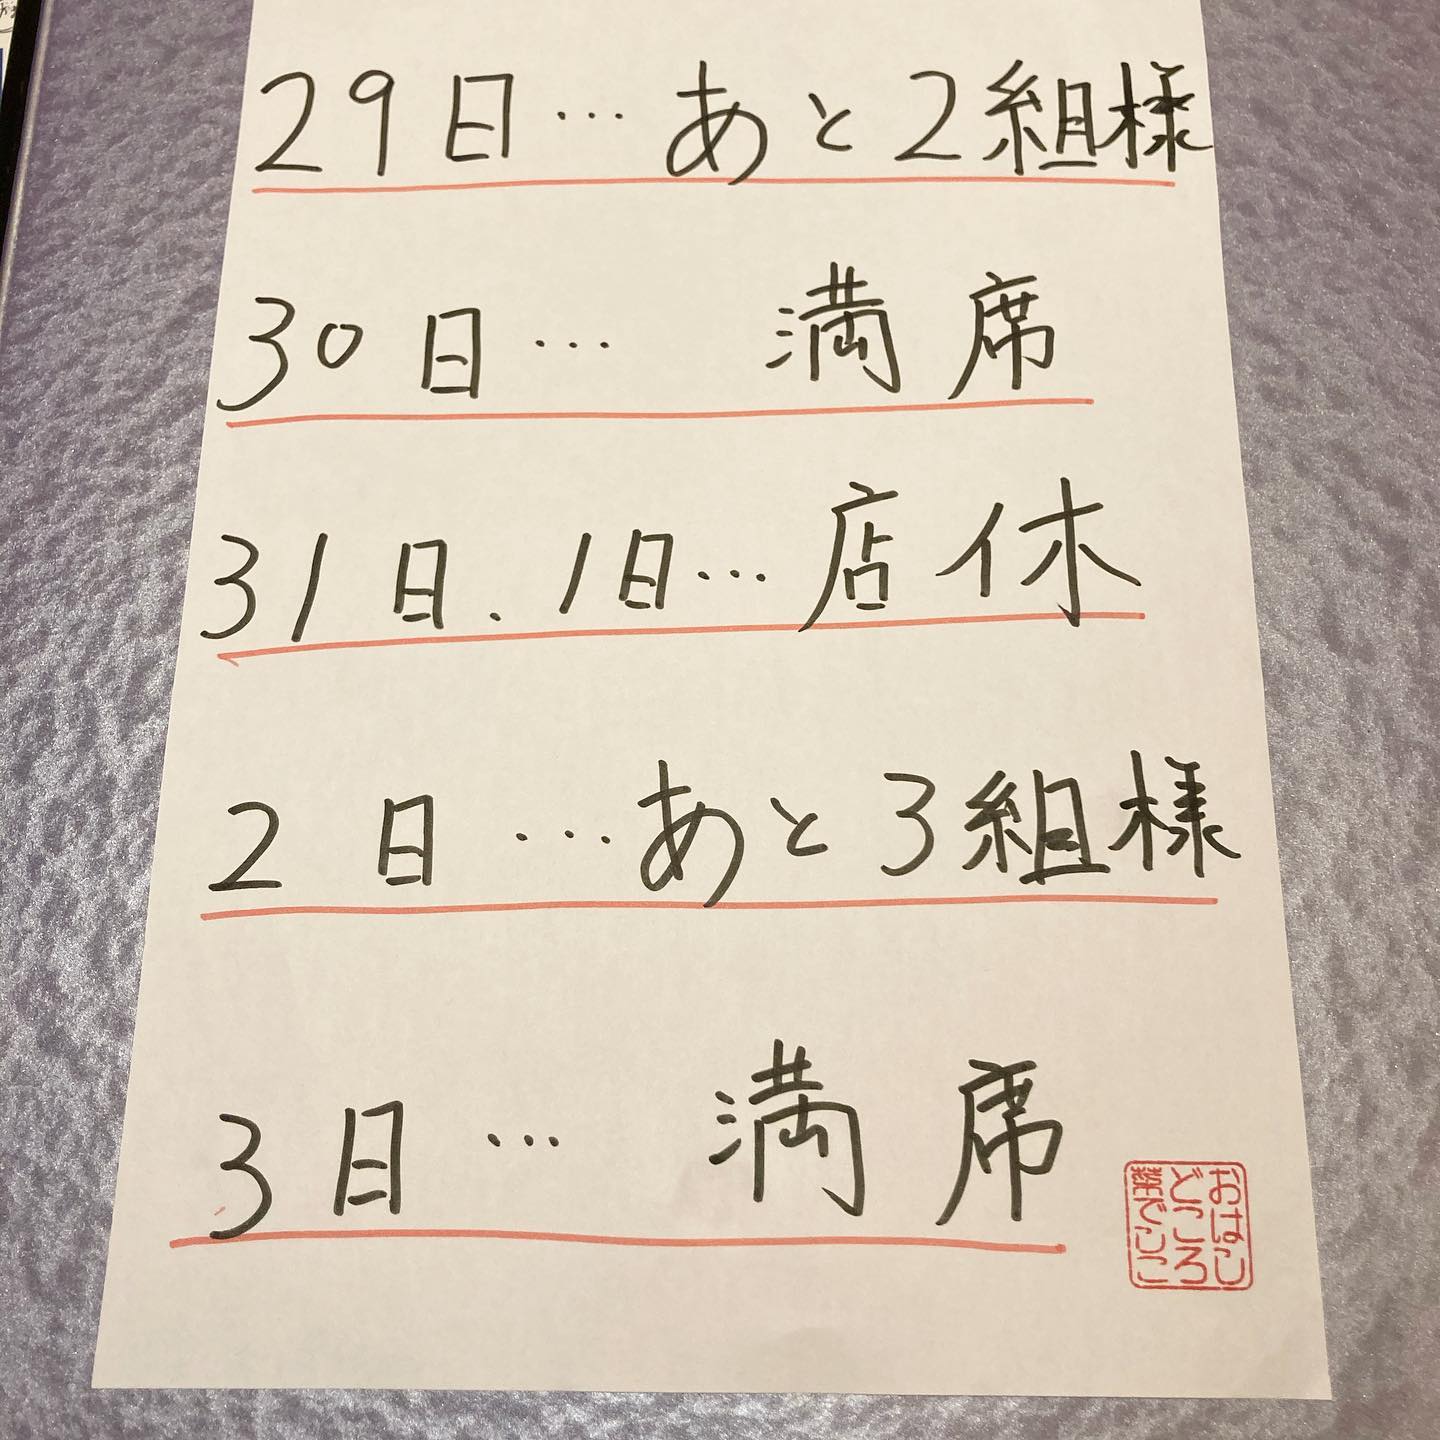 29日…あと2組様
30日… 満席
31日.1日…店休
2日…あと3組様
3日… 満席
おはし
どころ